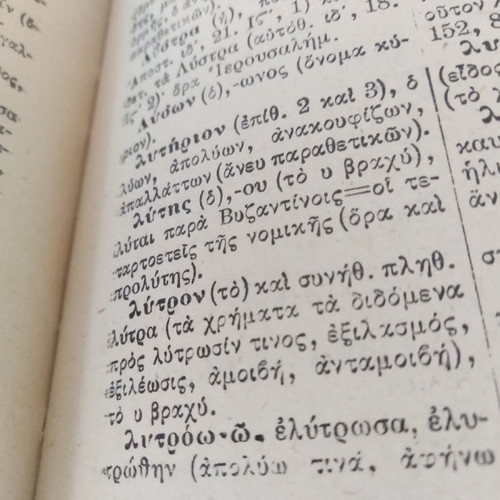 (ἄνευ παραθετικῶν).
Λύστρα (ἡ),
Ἀποστ. ιδ΄, 21. Ις΄, 1)
τὰ Λύστρα (αὐτόθ. ιδ΄, 18.
2). ὅρα Ἱερουσαλήμ.
Λύσων (ὁ),-ωνος (ὄνομα κύ-
ριον).
λυτήριον (ἐπίθ. 2 καὶ 3), ὁ
λύων, ἀπολύων, ἀνακουφίζων,
ἀπαλλάττων (ἄνευ παραθετικῶν).
λύτης (ὁ),-ου (τὸ υ βραχύ),
λύται παρὰ Βυζαντίνοις=οἱ τε-
ταρτοετεῖς τῆς νομικῆς (ὅρα καὶ
προλύτης).
λύτρον (τὸ) καὶ συνήθ. πληθ.
λύτρα (τὰ χρήματα τὰ διδόμενα
πρὸς λύτρωσίν τινος, ἐξιλασμός,
ἐξιλέωσις, ἀμοιβή, ἀνταμοιβή),
τὸ υ βραχύ.
λυτρόω-ῶ, ἐλύτρωσα, ἐλυ-
τρώθην (ἀπολύω τινά, ἀφήνω
οὗτον
152, 8
(εἶδος
(τὸ
καυ
ἡλι